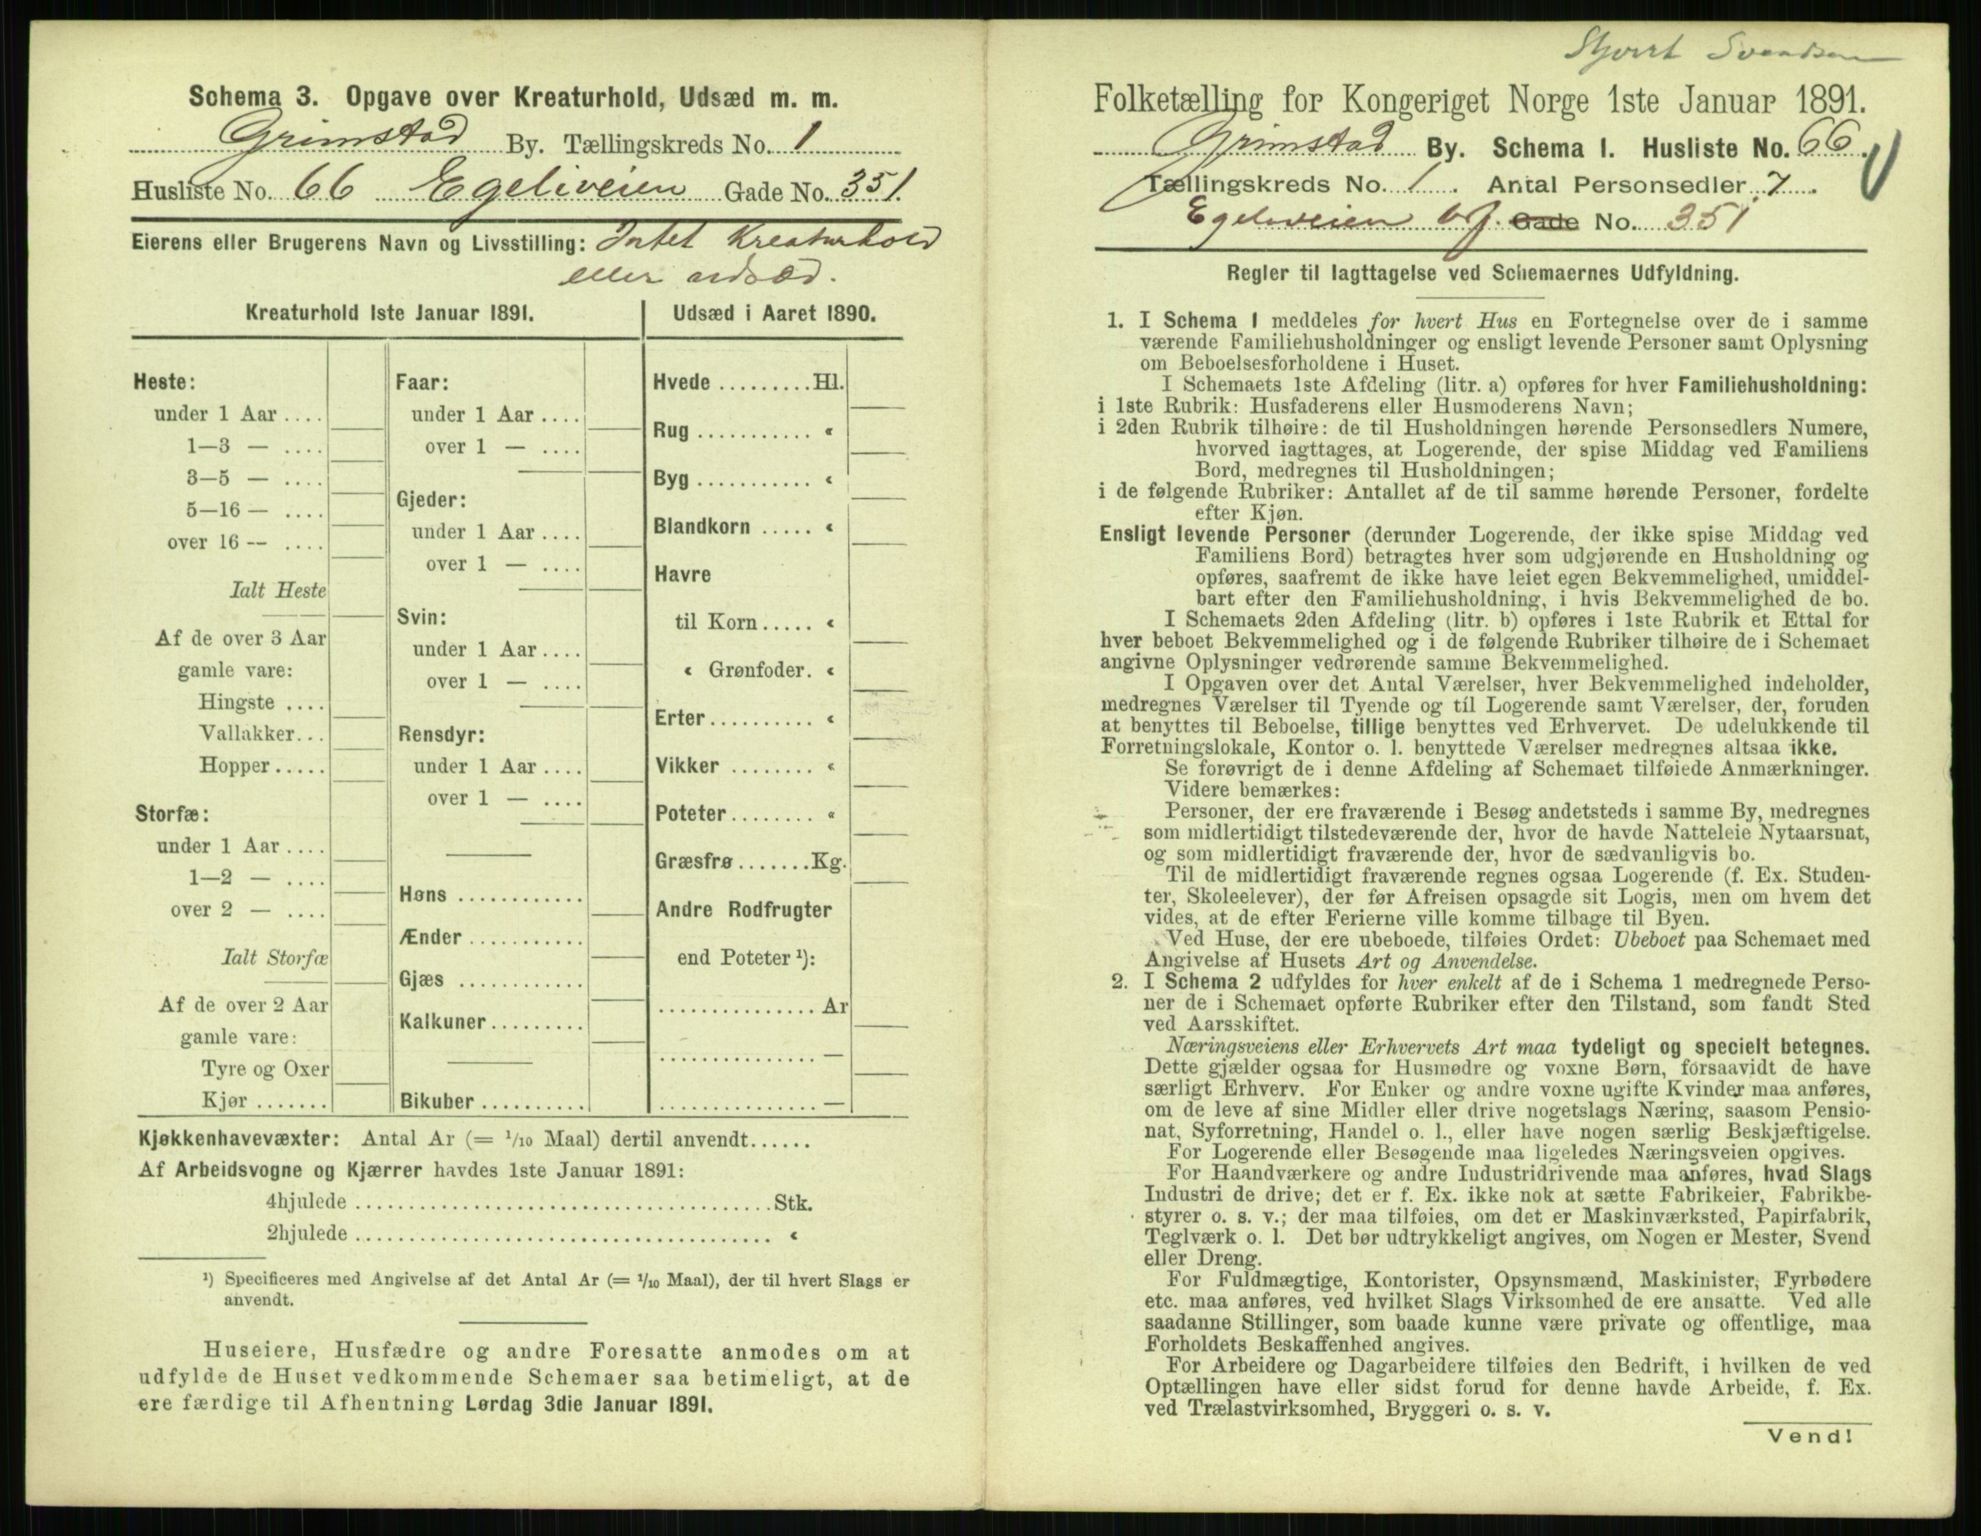 Schema 3. Opgave over Kreaturhold, Udsæd m. m.
Grimstad By. Tællingskreds No. 1
Husliste No. 66 Egeliveien Gade No. 351.
Eierens eller Brugerens Navn og Livsstilling: Intet Kreaturhold
eller udsæd.
Kreaturhold 1ste Januar 1891.
Heste:
under 1 Aar ....
1—3 — ....
3—5 — ....
5—16 — ....
over 16 — ....
Ialt Heste
Af de over 3 Aar
gamle vare:
Hingste ....
Vallakker...
Hopper.....
Storfæ:
under 1 Aar ....
1—2 — ....
over 2 — ....
Ialt Storfæ
Af de over 2 Aar
gamle vare:
Tyre og Oxer
Kjør .......
Faar:
under 1 Aar ....
over 1 — ....
Gjeder:
under 1 Aar ....
over 1 — ....
Svin:
under 1 Aar ....
over 1 — ....
Rensdyr:
under 1 Aar ....
over 1 — ....
Høns ............
Ænder ...........
Gjæs ............
Kalkuner.........
Bikuber ..........
Udsæd i Aaret 1890.
Hvede .........Hl.
Rug ........... «
Byg ........... «
Blandkorn ..... «
Havre
til Korn..... «
« Grønfoder. «
Erter.......... «
Vikker ........ «
Poteter........ «
Græsfrø .......Kg.
Andre Rodfrugter
end Poteter ¹):
............... Ar
............... —
............... —
Kjøkkenhavevæxter: Antal Ar (= 1/10 Maal) dertil anvendt......
Af Arbeidsvogne og Kjærrer havdes 1ste Januar 1891:
4hjulede ........................................Stk.
2hjulede ........................................ «
¹) Specificeres med Angivelse af det Antal Ar (= 1/10 Maal), der til hvert Slags er
anvendt.
Huseiere, Husfædre og andre Foresatte anmodes om at
udfylde de Huset vedkommende Schemaer saa betimeligt, at de
ere færdige til Afhentning Lørdag 3die Januar 1891.
Svendsen
Folketælling for Kongeriget Norge 1ste Januar 1891.
Grimstad By. Schema 1. Husliste No. 66.
Tællingskreds No. 1. Antal Personsedler 7.
Egeliveien Gade No. 351
Regler til Iagttagelse ved Schemaernes Udfyldning.
1. I Schema 1 meddeles for hvert Hus en Fortegnelse over de i samme
værende Familiehusholdninger og ensligt levende Personer samt Oplysning
om Beboelsesforholdene i Huset.
I Schemaets 1ste Afdeling (litr. a) opføres for hver Familiehusholdning:
i 1ste Rubrik: Husfaderens eller Husmoderens Navn;
i 2den Rubrik tilhøire: de til Husholdningen hørende Personsedlers Numere,
hvorved iagttages, at Logerende, der spise Middag ved Familiens
Bord, medregnes til Husholdningen;
i de følgende Rubriker: Antallet af de til samme hørende Personer, fordelte
efter Kjøn.
Ensligt levende Personer (derunder Logerende, der ikke spise Middag ved
Familiens Bord) betragtes hver som udgjørende en Husholdning og
opføres, saafremt de ikke have leiet egen Bekvemmelighed, umiddel-
bart efter den Familiehusholdning, i hvis Bekvemmelighed de bo.
I Schemaets 2den Afdeling (litr. b) opføres i 1ste Rubrik et Ettal for
hver beboet Bekvemmelighed og i de følgende Rubriker tilhøire de i Schemaet
angivne Oplysninger vedrørende samme Bekvemmelighed.
I Opgaven over det Antal Værelser, hver Bekvemmelighed indeholder,
medregnes Værelser til Tyende og til Logerende samt Værelser, der, foruden
at benyttes til Beboelse, tillige benyttes ved Erhvervet. De udelukkende til
Forretningslokale, Kontor o. l. benyttede Værelser medregnes altsaa ikke.
Se forøvrigt de i denne Afdeling af Schemaet tilføiede Anmærkninger.
Videre bemærkes:
Personer, der ere fraværende i Besøg andetsteds i samme By, medregnes
som midlertidigt tilstedeværende der, hvor de havde Natteleie Nytaarsnat,
og som midlertidigt fraværende der, hvor de sædvanligvis bo.
Til de midlertidigt fraværende regnes ogsaa Logerende (f. Ex. Studen-
ter, Skoleelever), der før Afreisen opsagde sit Logis, men om hvem det
vides, at de efter Ferierne ville komme tilbage til Byen.
Ved Huse, der ere ubeboede, tilføies Ordet: Ubeboet paa Schemaet med
Angivelse af Husets Art og Anvendelse.
2. I Schema 2 udfyldes for hver enkelt af de i Schema 1 medregnede Perso-
ner de i Schemaet opførte Rubriker efter den Tilstand, som fandt Sted
ved Aarsskiftet.
Næringsveiens eller Erhvervets Art maa tydeligt og specielt betegnes.
Dette gjælder ogsaa for Husmødre og voxne Børn, forsaavidt de have
særligt Erhverv. For Enker og andre voxne ugifte Kvinder maa anføres,
om de leve af sine Midler eller drive nogetslags Næring, saasom Pensio-
nat, Syforretning, Handel o. l., eller have nogen særlig Beskjæftigelse.
For Logerende eller Besøgende maa ligeledes Næringsveien opgives.
For Haandværkere og andre Industridrivende maa anføres, hvad Slags
Industri de drive; det er f. Ex. ikke nok at sætte Fabrikeier, Fabrikbe-
styrer o. s. v.; der maa tilføies, om det er Maskinværksted, Papirfabrik,
Teglværk o. l. Det bør udtrykkeligt angives, om Nogen er Mester, Svend
eller Dreng.
For Fuldmægtige, Kontorister, Opsynsmænd, Maskinister, Fyrbødere
etc. maa anføres, ved hvilket Slags Virksomhed de ere ansatte. Ved alle
saadanne Stillinger, som baade kunne være private og offentlige, maa
Forholdets Beskaffenhed angives.
For Arbeidere og Dagarbeidere tilføies den Bedrift, i hvilken de ved
Optællingen have eller sidst forud for denne havde Arbeide, f. Ex.
ved Trælastvirksomhed, Bryggeri o. s. v.
Vend!